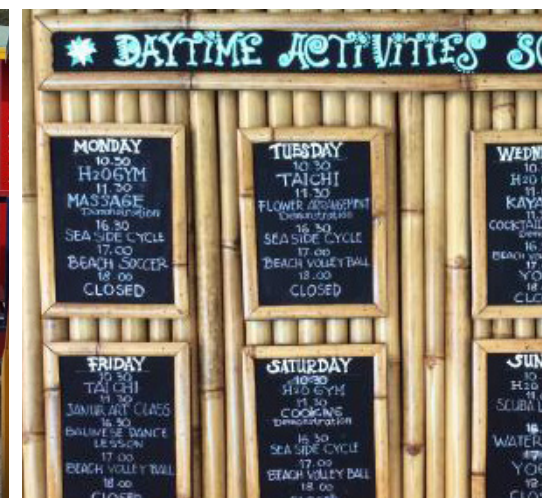 DAYTIME ACTIVITIES SC
MONDAY
10.30
H2O GYM
11.30
MASSAGE
Demonstration
16.30
SEA SIDE CYCLE
17.00
BEACH SOCCER
18.00
CLOSED
TUESDAY
10.30
TAICHI
11.30
FLOWER ARRANGEMENT
Demonstration
16.30
SEA SIDE CYCLE
17.00
BEACH VOLLEY BALL
18.00
CLOSED
WEDN
10.
H2O
11.
KAYA
11.
COCKTAIL
Dem
16.
BEACH VOLL
17.
YO
18.
CLO
FRIDAY
10.30
TAI CHI
11.30
JANUR ART CLASS
16.30
BALINESE DANCE
LESSON
17.00
BEACH VOLLEY BALL
18.00
CLOSED
SATURDAY
10.30
H2O GYM
11.30
COOKING
Demonstration
16.30
SEA SIDE CYCLE
17.00
BEACH VOLLEY BALL
18.00
CLOSED
SUN
10.
H2O
11.
SCUBA L
16
WATER
17
YOG
18.
CLO